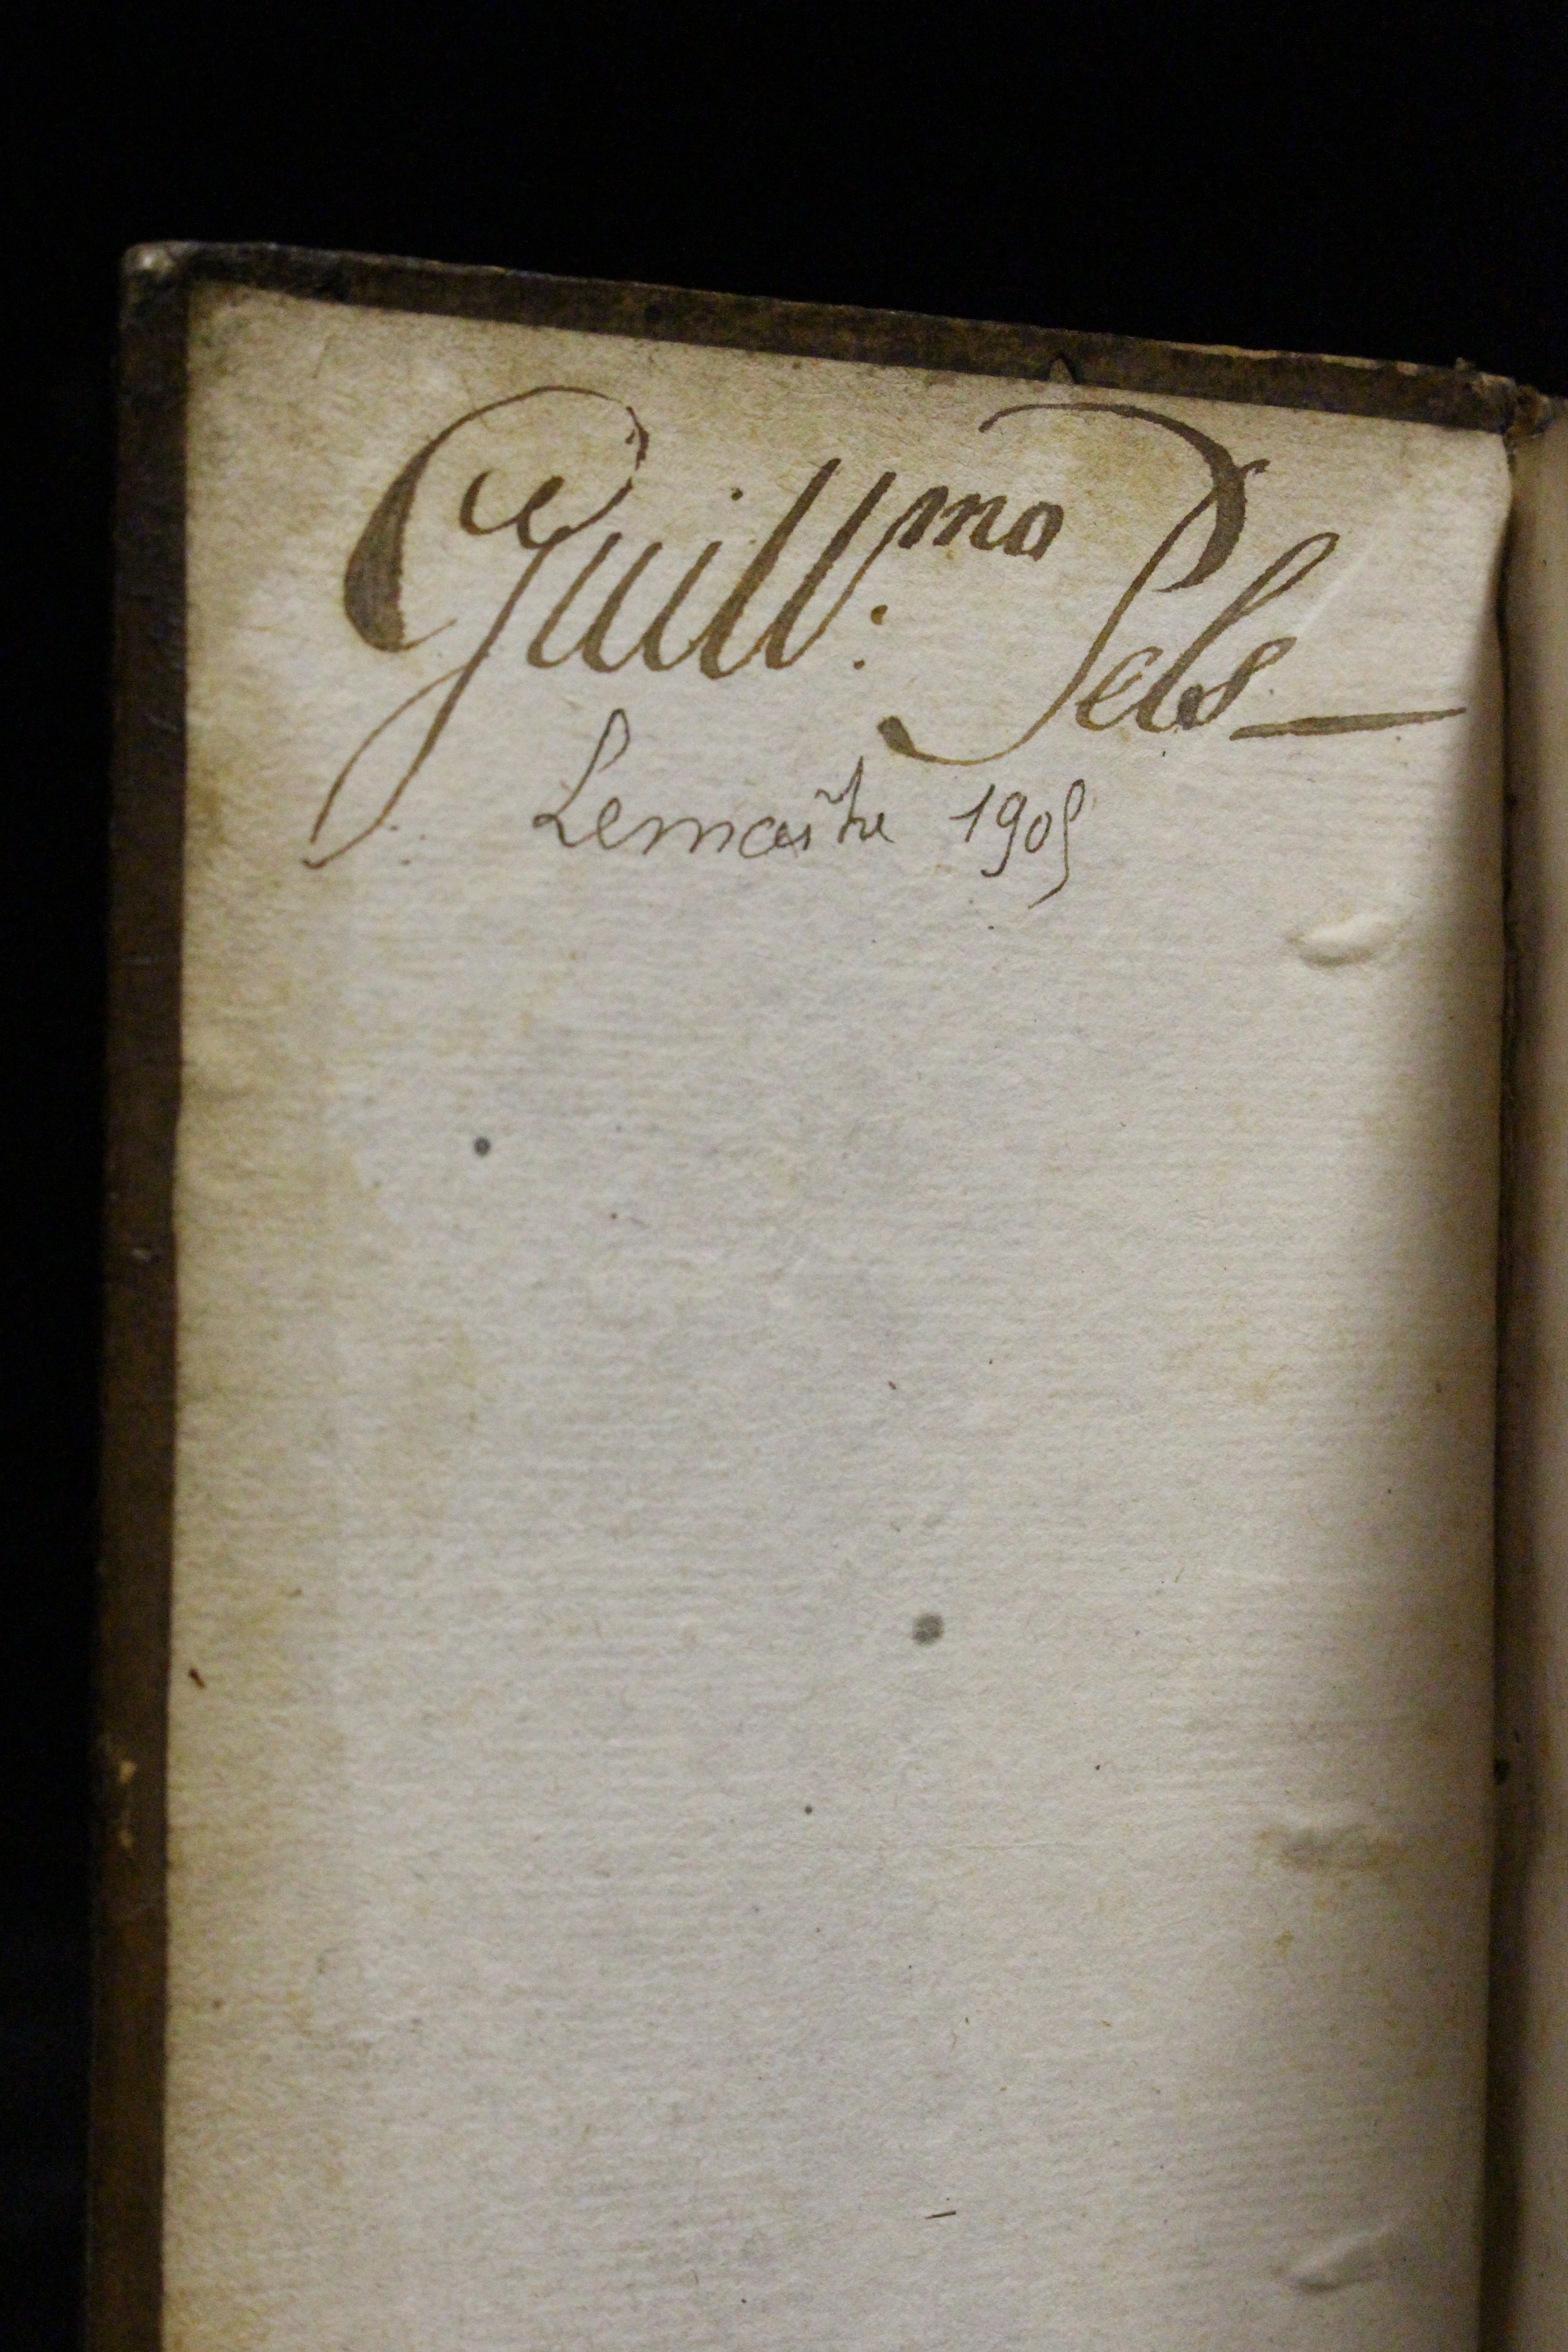 Guill:ma Pels
Lemaître 1905